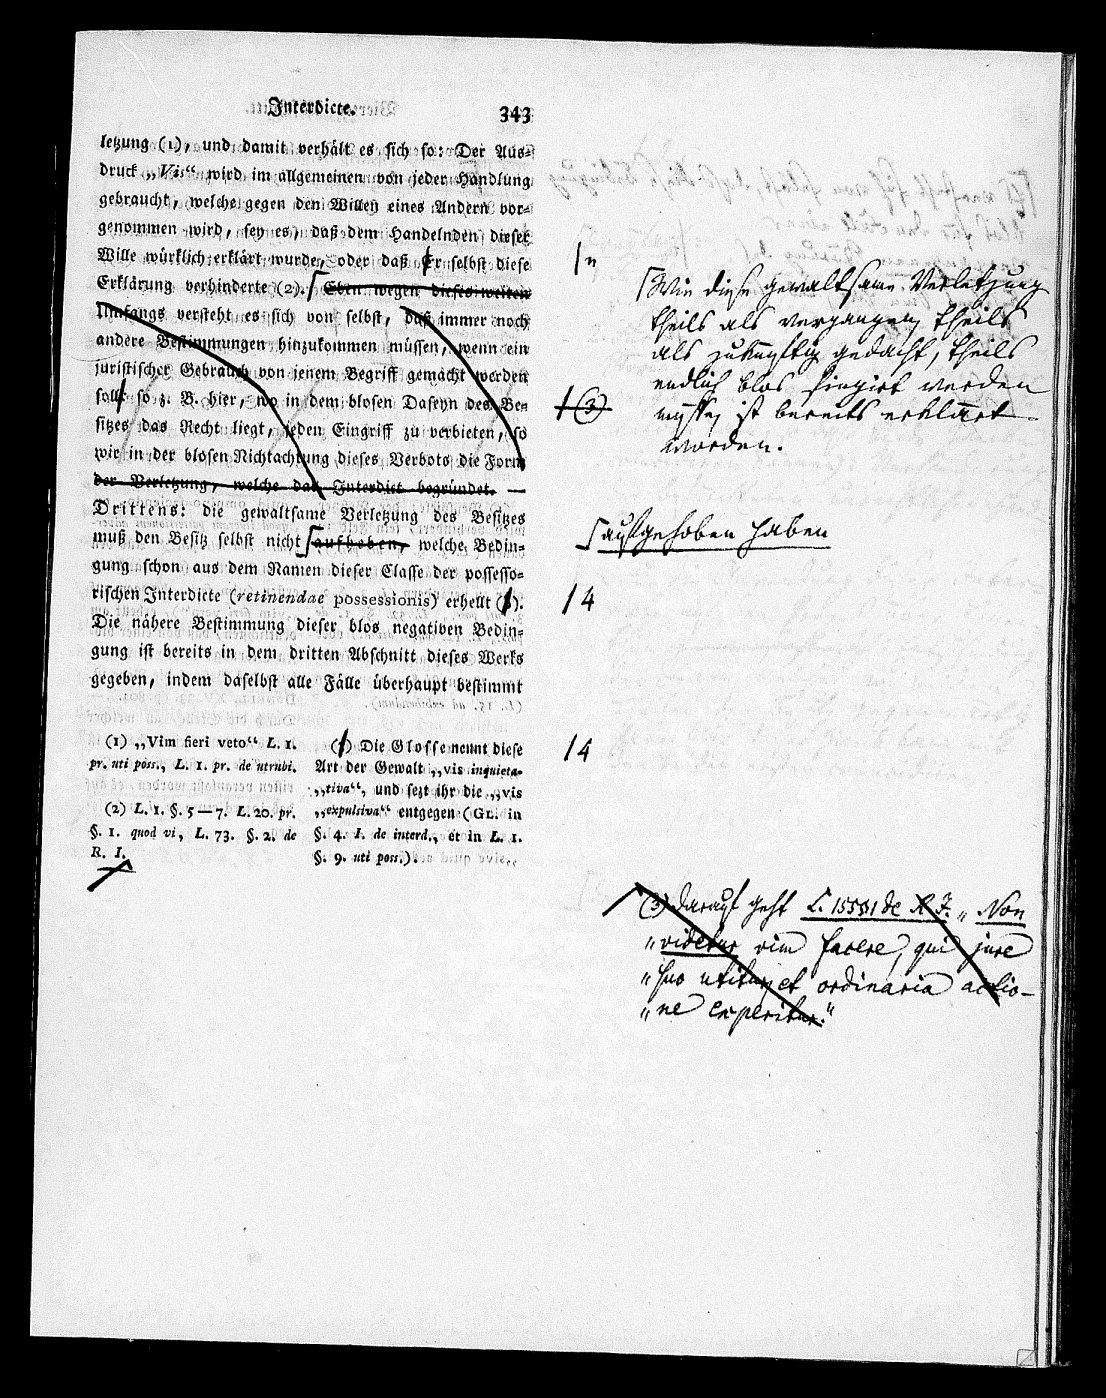 Interdicte. 343
letzung (1), und damit verhält es sich so: Der Aus-
druck „Vis“ wird im allgemeinen von jeder Handlung
gebraucht, welche gegen den Willen eines Andern vor-
genommen wird, sey es, daß dem Handelnden dieser
Wille würklich erklärt wurde, oder daß Er selbst diese
Erklärung verhinderte (2). Eben wegen dieses weiten
Umfangs versteht es sich von selbst, daß immer noch
andere Bestimmungen hinzukommen müssen, wenn ein
juristischer Gebrauch von jenem Begriff gemacht werden
soll: so z. B. hier, wo in dem blosen Daseyn des Be-
sitzes das Recht liegt, jeden Eingriff zu verbieten, so
wir in der blosen Nichtachtung dieses Verbots die Form
der Verletzung, welche das Interdict begründet. —
Drittens: die gewaltsame Verletzung des Besitzes
muß den Besitz selbst nicht aufheben, welche Bedin-
gung schon aus dem Namen dieser Classe der possesso-
rischen Interdicte (retinendae possessionis) erhellt (3).
Die nähere Bestimmung dieser blos negativen Bedin-
gung ist bereits in dem dritten Abschnitt dieses Werks
gegeben, indem daselbst alle Fälle überhaupt bestimmt
(1) „Vim fieri veto“ L. 1.
pr. uti poss., L. 1. pr. de utrubi.
(2) L. 1. §. 5—7. L. 20. pr.
§. 1. quod vi, L. 73. §. 2. de
R. I.
(3) Die Glosse nennt diese
Art der Gewalt „vis inquieta-
„tiva“, und sezt ihr die „vis
„expulsiva“ entgegen (Gl. in
§. 4. I. de interd., et in L. 1.
§. 9. uti poss.).
Wie diese gewaltsame Verletzung
theils als vergangen, theils
als zukünftig gedacht, theils
endlich blos fingirt werden
(3)
müsse, ist bereits erklärt
worden.
aufgehoben haben
4
4
(3) Darauf geht L. 155 §1 de R. J. „Non
„videtur vim facere, qui jure
„suo utitur, et ordinaria actio-
„ne experitur.“